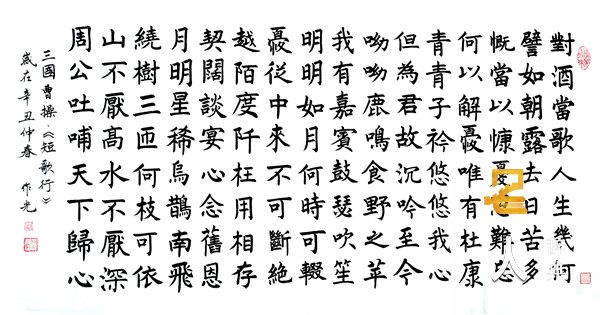 對酒當歌人生幾何
譬如朝露去日苦多
慨當以慷憂思難忘
何以解憂唯有杜康
青青子衿悠悠我心
但為君故沉吟至今
呦呦鹿鳴食野之苹
我有嘉賓鼓瑟吹笙
明明如月何時可輟
憂從中來不可斷絕
越陌度阡枉用相存
契闊談宴心念舊恩
月明星稀烏鵲南飛
繞樹三匝何枝可依
山不厭高水不厭深
周公吐哺天下歸心
三國曹操《短歌行》
歲在辛丑仲春 作光